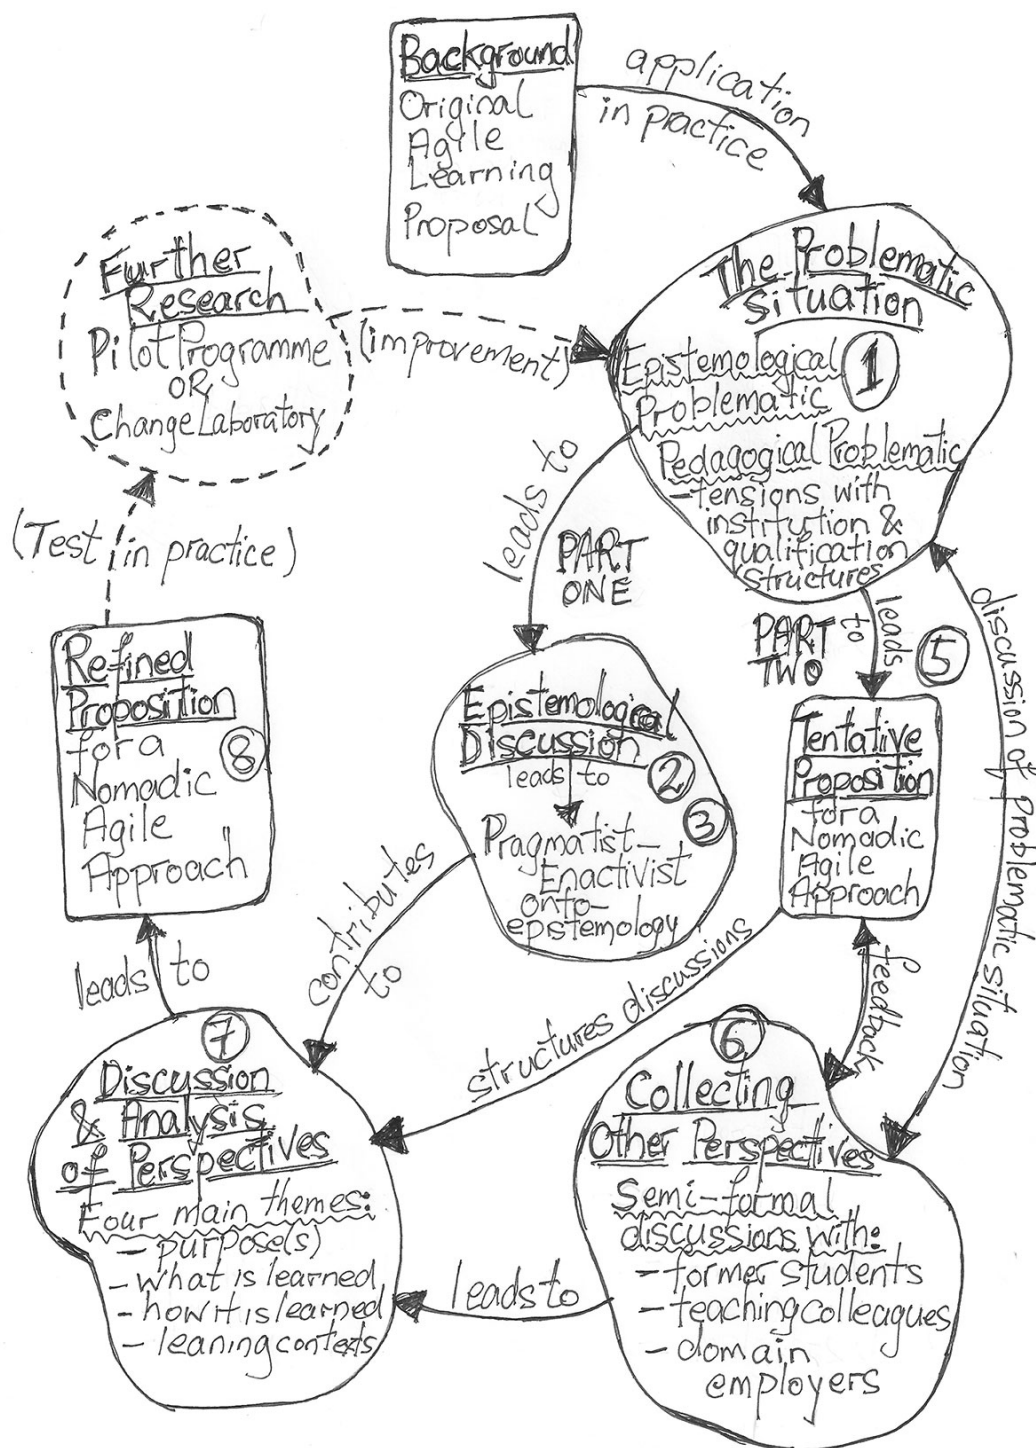 Background
Original
Agile
Learning
Proposal
application
in practice
The Problematic
Situation
1
Epistemological
Problematic
Pedagogical Problematic
- tensions with
institurtion &
qualification
structures
Further
Research
Pilot Programme
OR
Change Laboratory
(improvement)
(Test in practice)
leads to
PART
ONE
leads
to
PART
TWO
5
discussion of problematic situation
Refined
Proposition
for a
Nomadic
Agile
Approach
8
Epistemological
Discussion
leads to
2
3
Pragmatist-
Enactivist
onto-
epistemology
Tentative
Proposition
for a
Nomadic
Agile
Approach
leads to
contributes
to
structures discussions
feedback
7
Discussion
& Analysis
of Perspectives
Four main themes:
- purpose(s)
- what is learned
- how it is learned
- leaning contexts
leads to
6
Collecting
Other Perspectives
Semi-formal
discussions with:
- former students
- teaching colleagues
- domain
employers